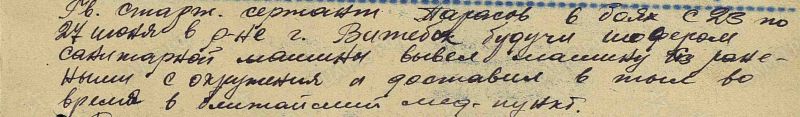 Гв. старш. сержант Тарасов в боях с 23 по
27 июня в р-не г. Витебск будучи шофером
санитарной машины вывел машину с ране-
ными с окружения и доставил в тыл во
время в ближайший мед-пункт.